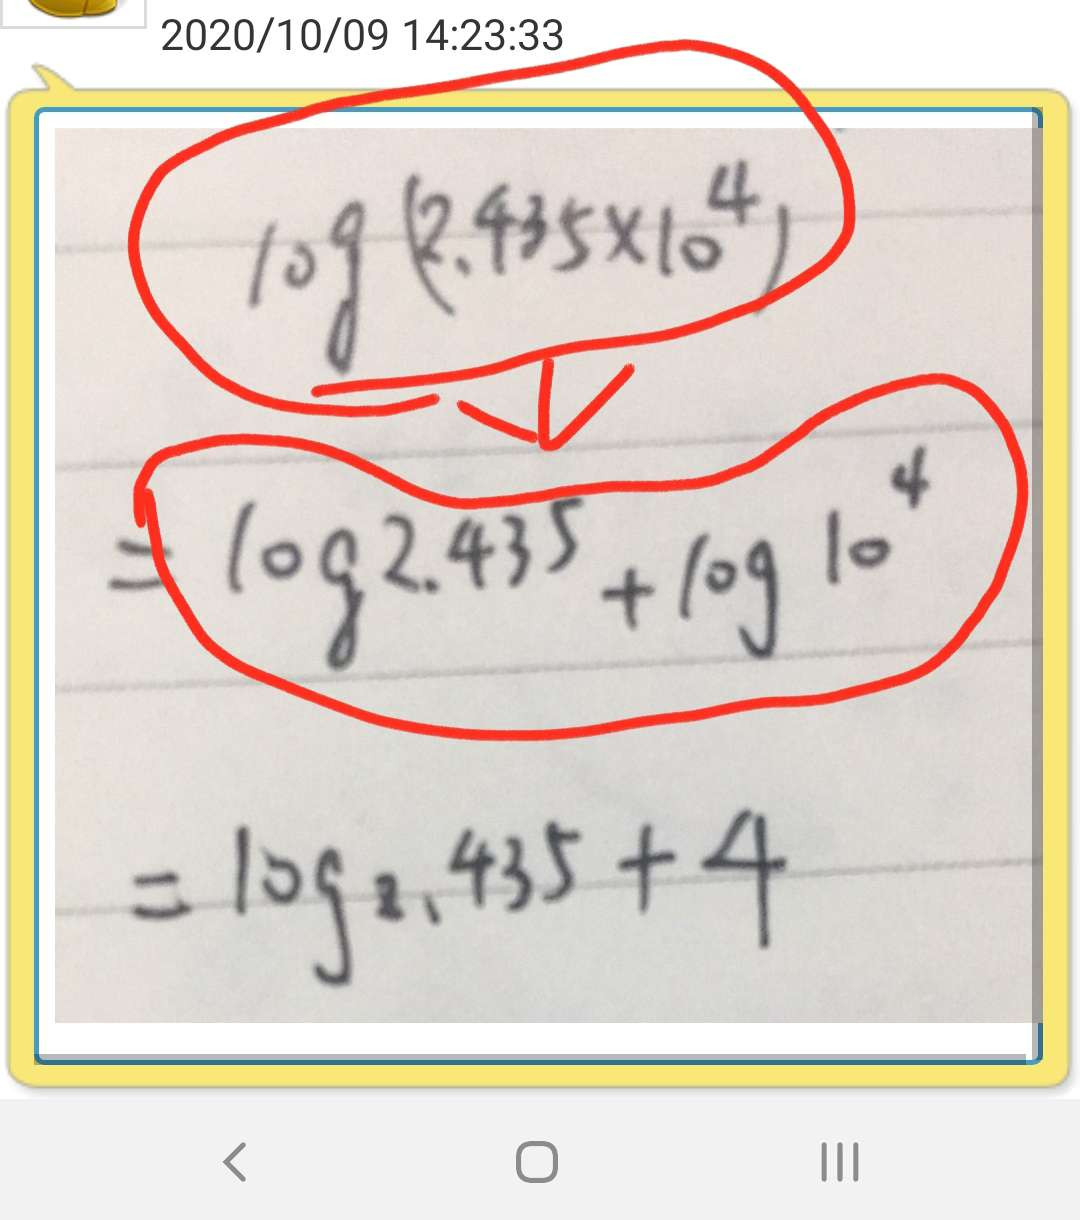 2020/10/09 14:23:33
log (2.435×10⁴)
= log 2.435 + log 10⁴
= log 2.435 + 4